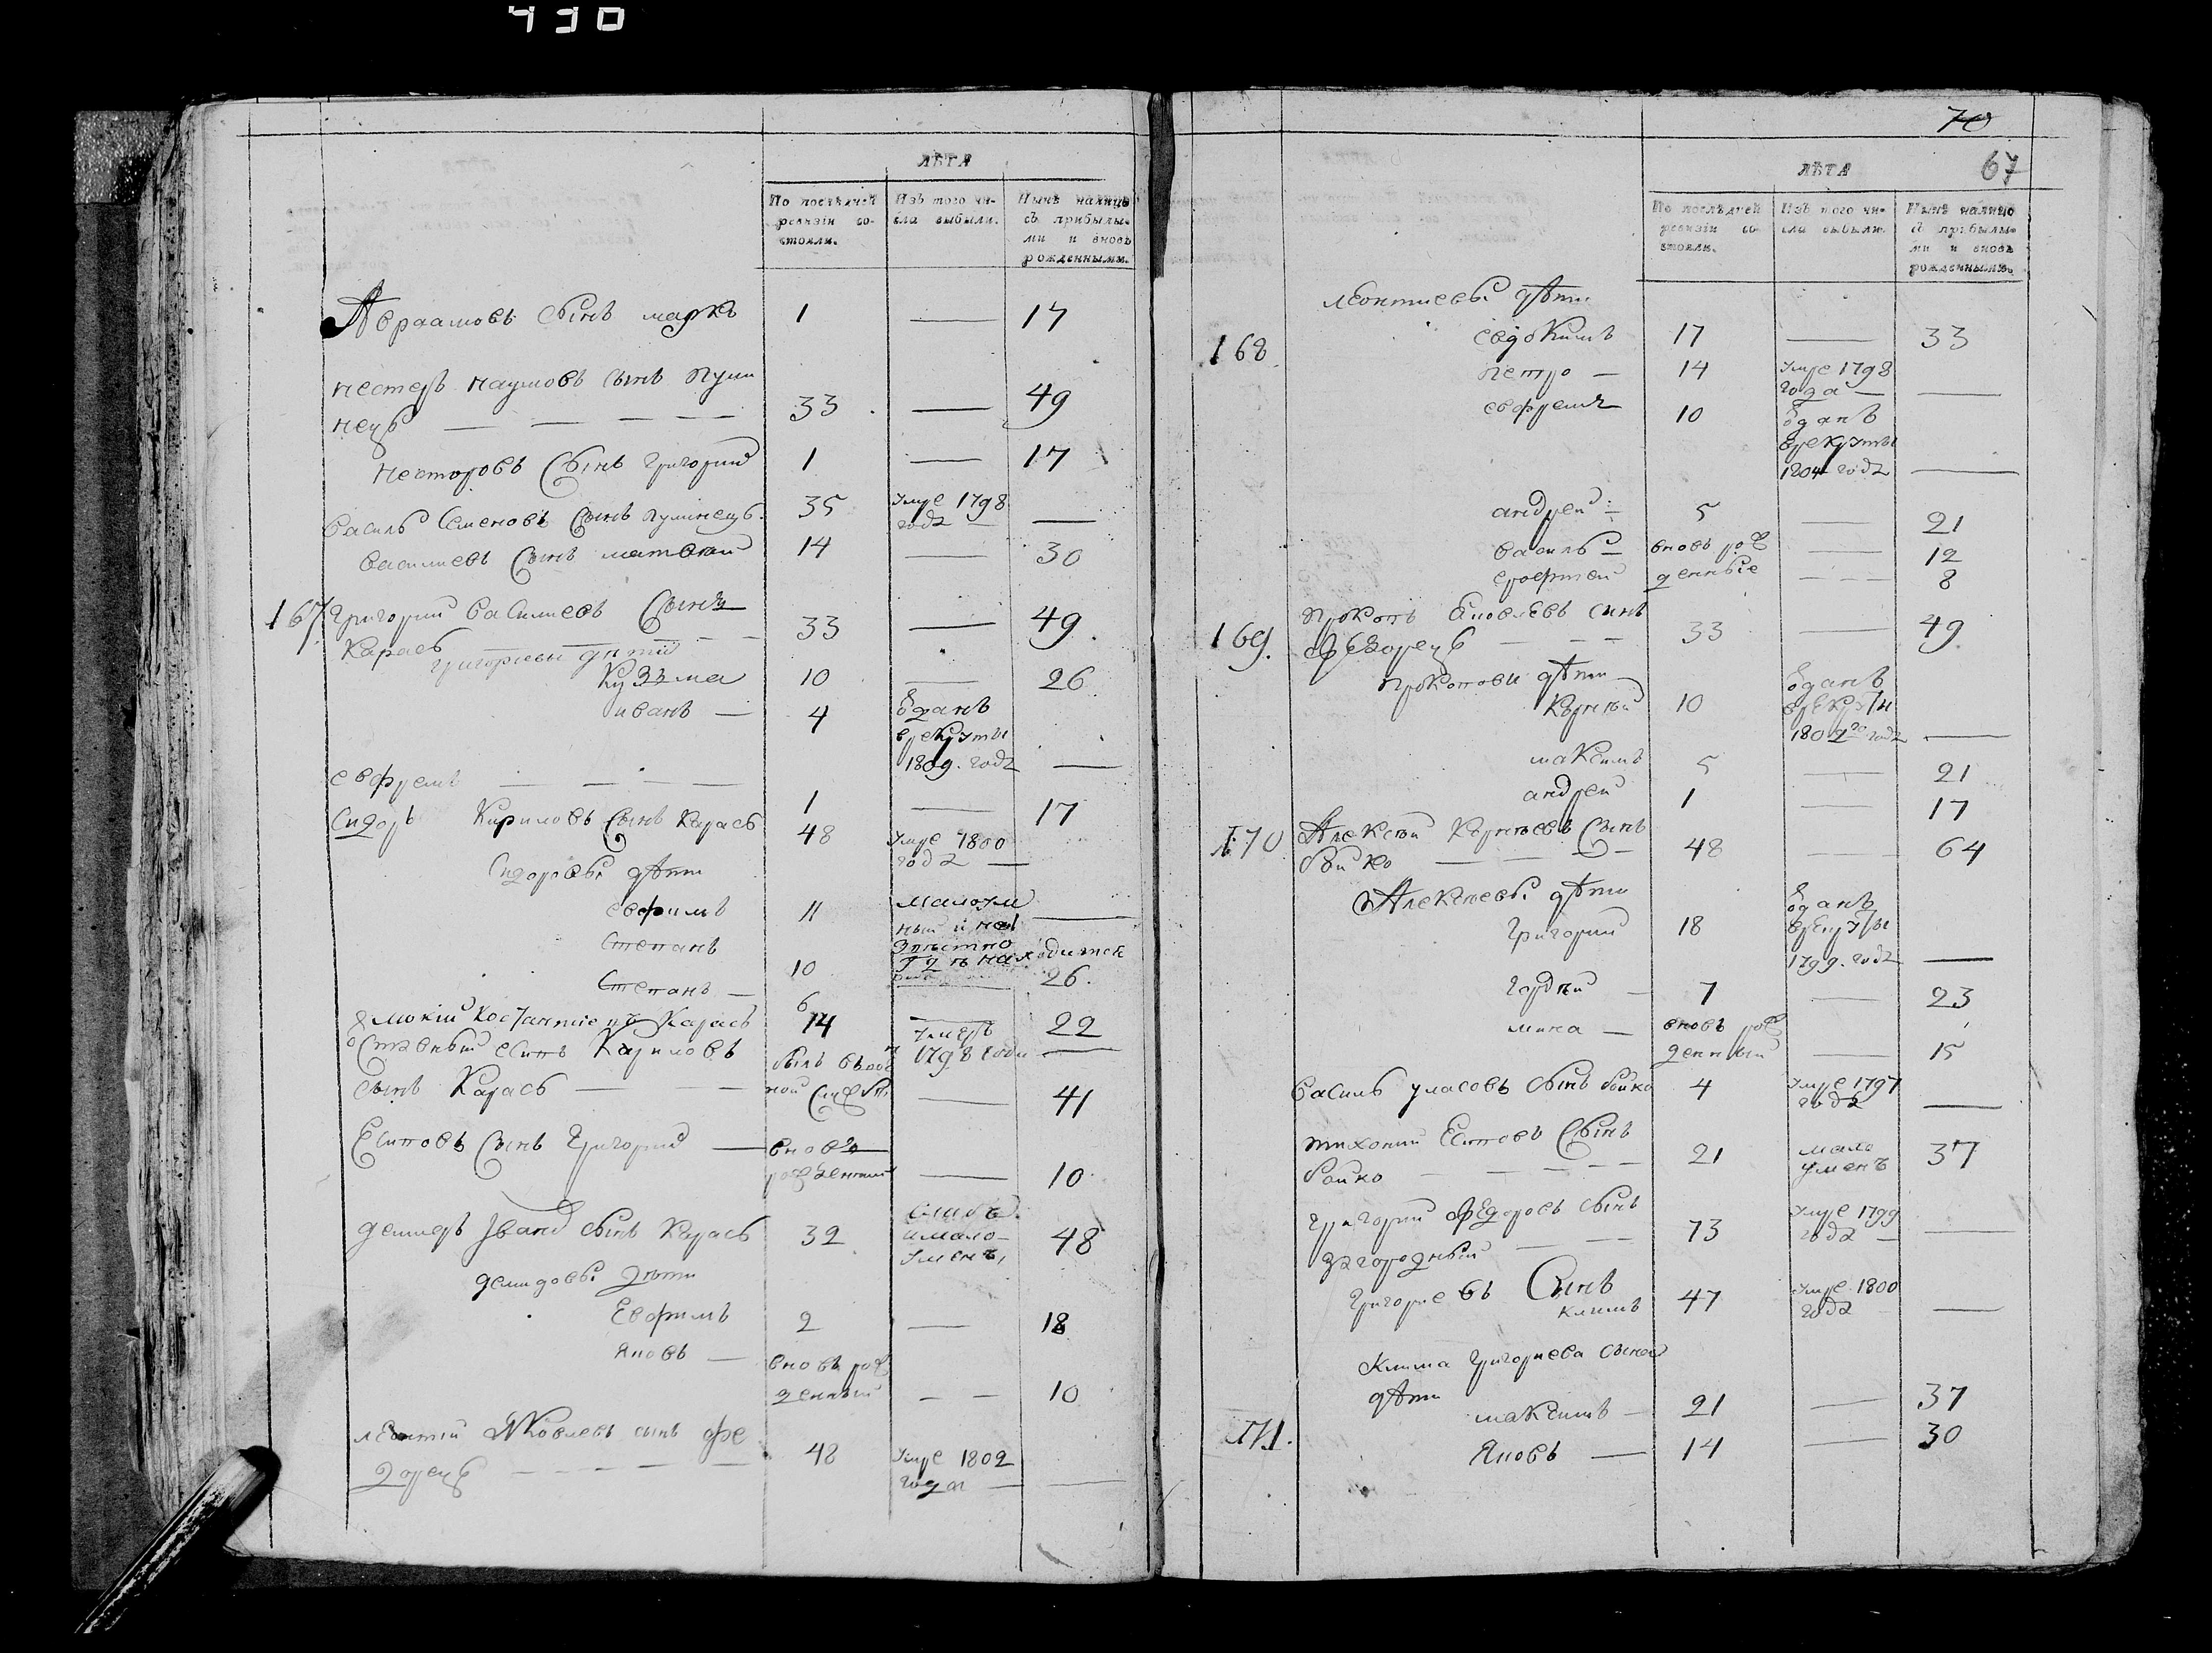 430
ЛѢТА
По послѣдней ревизіи со-стояли.
Изъ того чи-сла выбыли.
Нынѣ налицо съ прибылы-ми и вновь рожденными.
Авраамовъ Сынъ марко 1 — 17
нестеръ наумовъ сынъ
нецъ — — — 33 — 49
несторовъ Сынъ григорий 1 — 17
василь Семеновъ Сынъ 35 умре 1798
года — —
василиевъ Сынъ матвѣй 14 — 30
167 григорий василиевъ Сынъ
Карась — — 33 — 49
григориевы дѣти
Кузьма 10 — 26
иванъ — 4 ѿданъ
врекруты
1809. года —
евфремъ — — — — 1 — 17
Сидоръ Кириловъ Сынъ Карась 48 умре 1800
года —
Сидоровы дѣти
евфимъ 11 малоум
ный и неи —
Степанъ звѣстно
гдѣ находится
Степанъ — 10 — 26.
мокій Костантіевъ Карась 6 — 22
Ставный есипъ Кириловъ 14 умеръ
1798 году —
сынъ Карась — — былъ
ной — 41
Есиповъ Сынъ Григорий — вновь
рожденный — 10
Ивана сынъ Карась 32
имало-
уменъ, 48
демидовы дѣти
Евфимъ 2 — 18
яковъ — вновь рож
денный — — 10
леонтій Яковлевъ сынъ фе
дорецъ — — — — — 48 умре 1802
года — —
70
67
ЛѢТА
По послѣдней ревизіи со-стояли.
Изъ того чи-сла выбыли.
Нынѣ налицо съ прибылы-ми и вновь рожденными.
леонтиевы дѣти
168 евдокимъ 17 — 33
петро — 14 умре 1798
года — —
евфремъ 10 ѿданъ
врекруты
1804 года —
андрей — 5 — 21
василь — вновь рож — 12
ерофтей денные — — 8
169. прокопъ Яковлевъ сынъ
федорецъ — — 33 — 49
прокопови дѣти
Корнѣй 10 ѿданъ
врекруты
1802го года —
максимъ 5 — 21
андрей 1 — 17
170 Алексѣй Корнѣевъ Сынъ
бойко — — — 48 — 64
Алексѣевы дѣти
Григорий 18 ѿданъ
врекруты
1799. года —
Гордѣй — 7 — 23
мина — вновь рож
денный — 15
василь уласовъ сынъ бойко 4 умре 1797
года —
тихоний Есиповъ Сынъ
бойко — — — — 21 мало
уменъ 37
григорий Федоровъ сынъ
загородный — — 73 умре 1799
года — —
григориевъ Сынъ
климъ 47 умре 1800
года —
Клима григориева сына
дѣти
максимъ — 21 — 37
171. Яковъ — 14 — 30